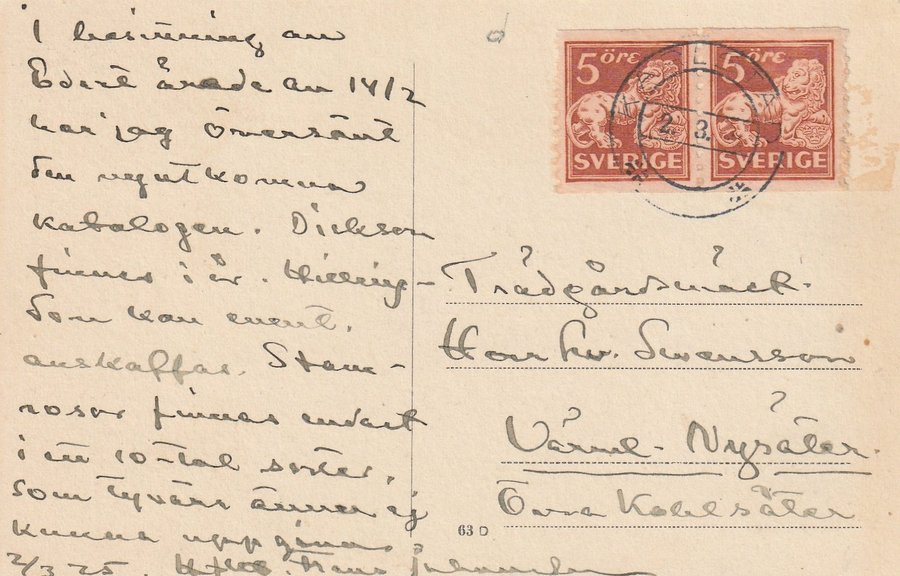 I besittning av
Edert ärade av 14/2
har jag översänt
den nyutkomna
katalogen. Dickson
finnes i år. Hilling-
don kan event.
anskaffas. Stam-
rosor finnas endast
i ett 10-tal sorter,
som tyvärr ännu ej
kunna uppgivas.
2/3 25. Hans Johansson
d
5 ÖRE 5 ÖRE
SVERIGE SVERIGE
2. 3.
Trädgårdsmäst.
Herr Sv. Swensson
Värml- Nysäter.
Östra Kohlsäter
63 D